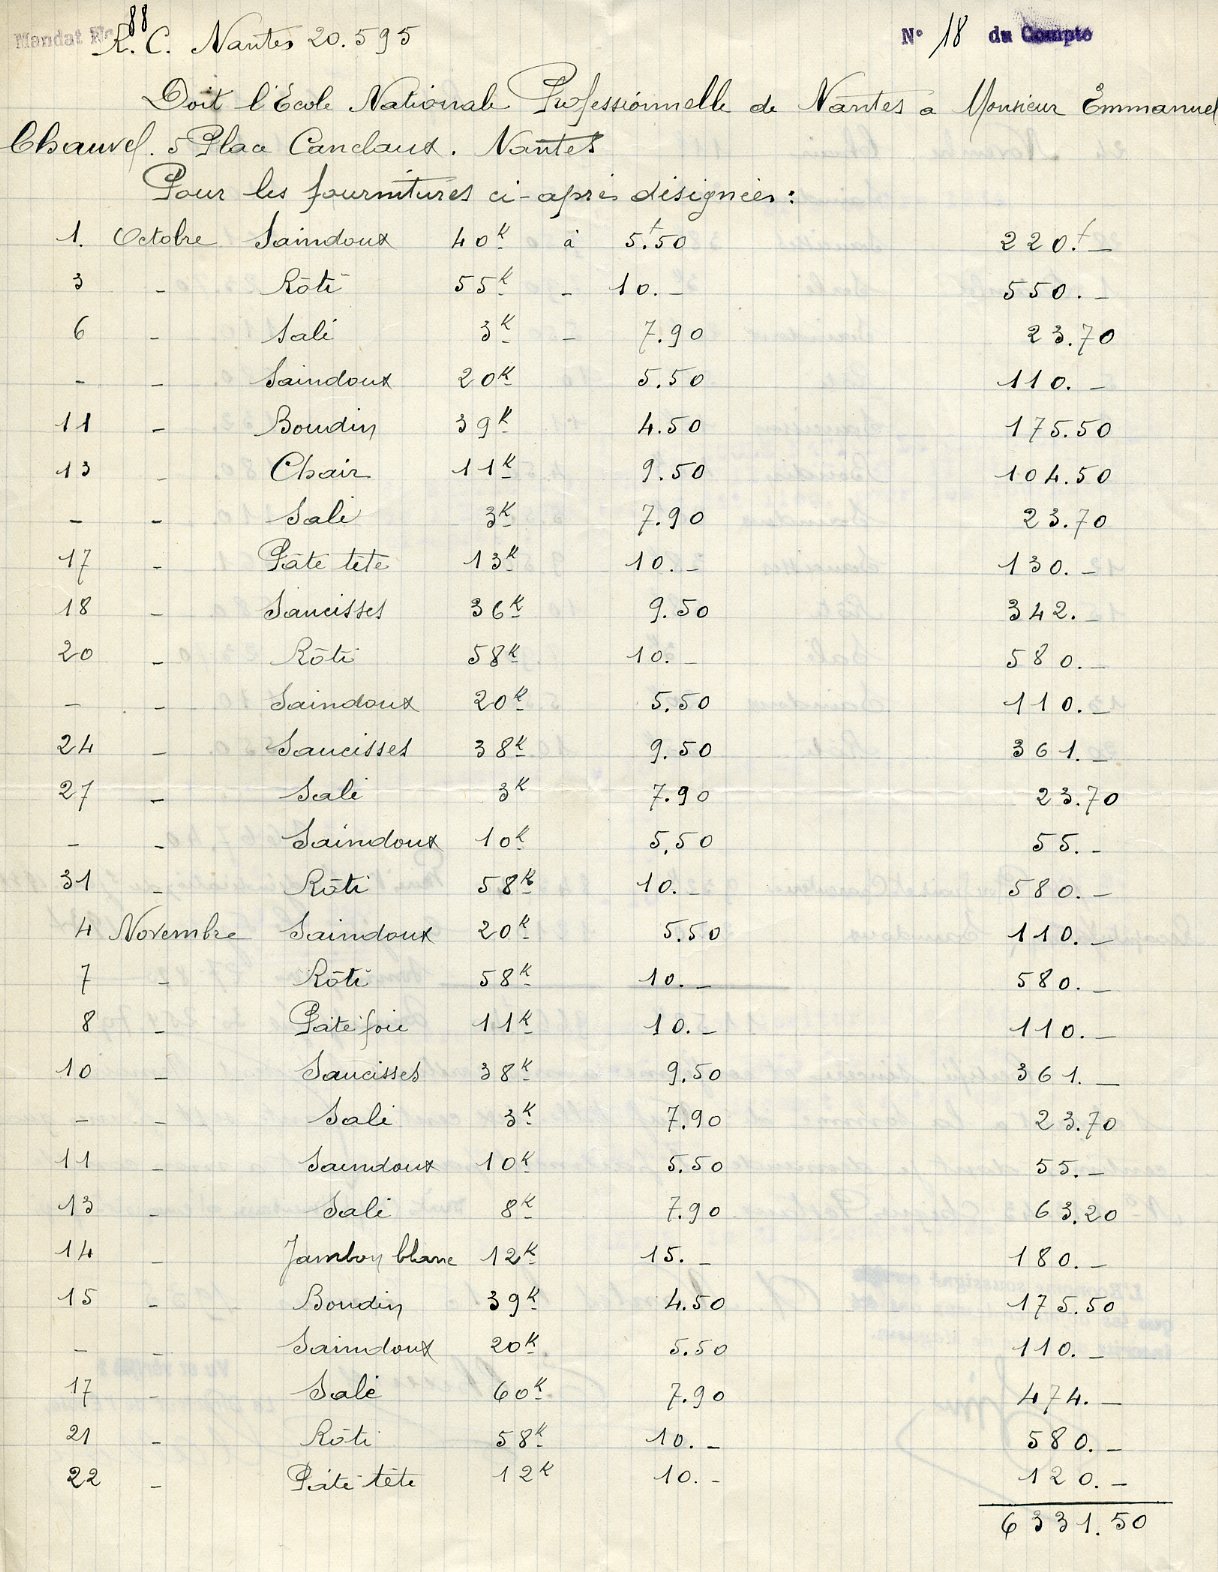 Mandat No 88 R.C. Nantes 20.595 N° 18 du Compte
Doit l'École Nationale Professionnelle de Nantes à Monsieur Emmanuel
Chauvel. 5 Place Canclaux. Nantes
Pour les fournitures ci-après désignées :
1. Octobre Saindoux 40K à 5.f50 220.f -
3 - Rôti 55K - 10.- 550.-
6 - Salé 3K - 7.90 23.70
- - Saindoux 20K 5.50 110.-
11 - Boudin 39K 4.50 175.50
13 - Chair 11K 9.50 104.50
- - Salé 3K 7.90 23.70
17 - Pâté tête 13K 10.- 130.-
18 - Saucisses 36K 9.50 342.-
20 - Rôti 58K 10.- 580.-
- - Saindoux 20K 5.50 110.-
24 - Saucisses 38K 9.50 361.-
27 - Salé 3K 7.90 23.70
- - Saindoux 10K 5.50 55.-
31 - Rôti 58K 10.- 580.-
4 Novembre Saindoux 20K 5.50 110.-
7 - Rôti 58K 10.- 580.-
8 - Pâté foie 11K 10.- 110.-
10 - Saucisses 38K 9.50 361.-
- - Salé 3K 7.90 23.70
11 - Saindoux 10K 5.50 55.-
13 - Salé 8K 7.90 63.20
14 - Jambon blanc 12K 15.- 180.-
15 - Boudin 39K 4.50 175.50
- - Saindoux 20K 5.50 110.-
17 - Salé 60K 7.90 474.-
21 - Rôti 58K 10.- 580.-
22 - Pâté tête 12K 10.- 120.-
6331.50